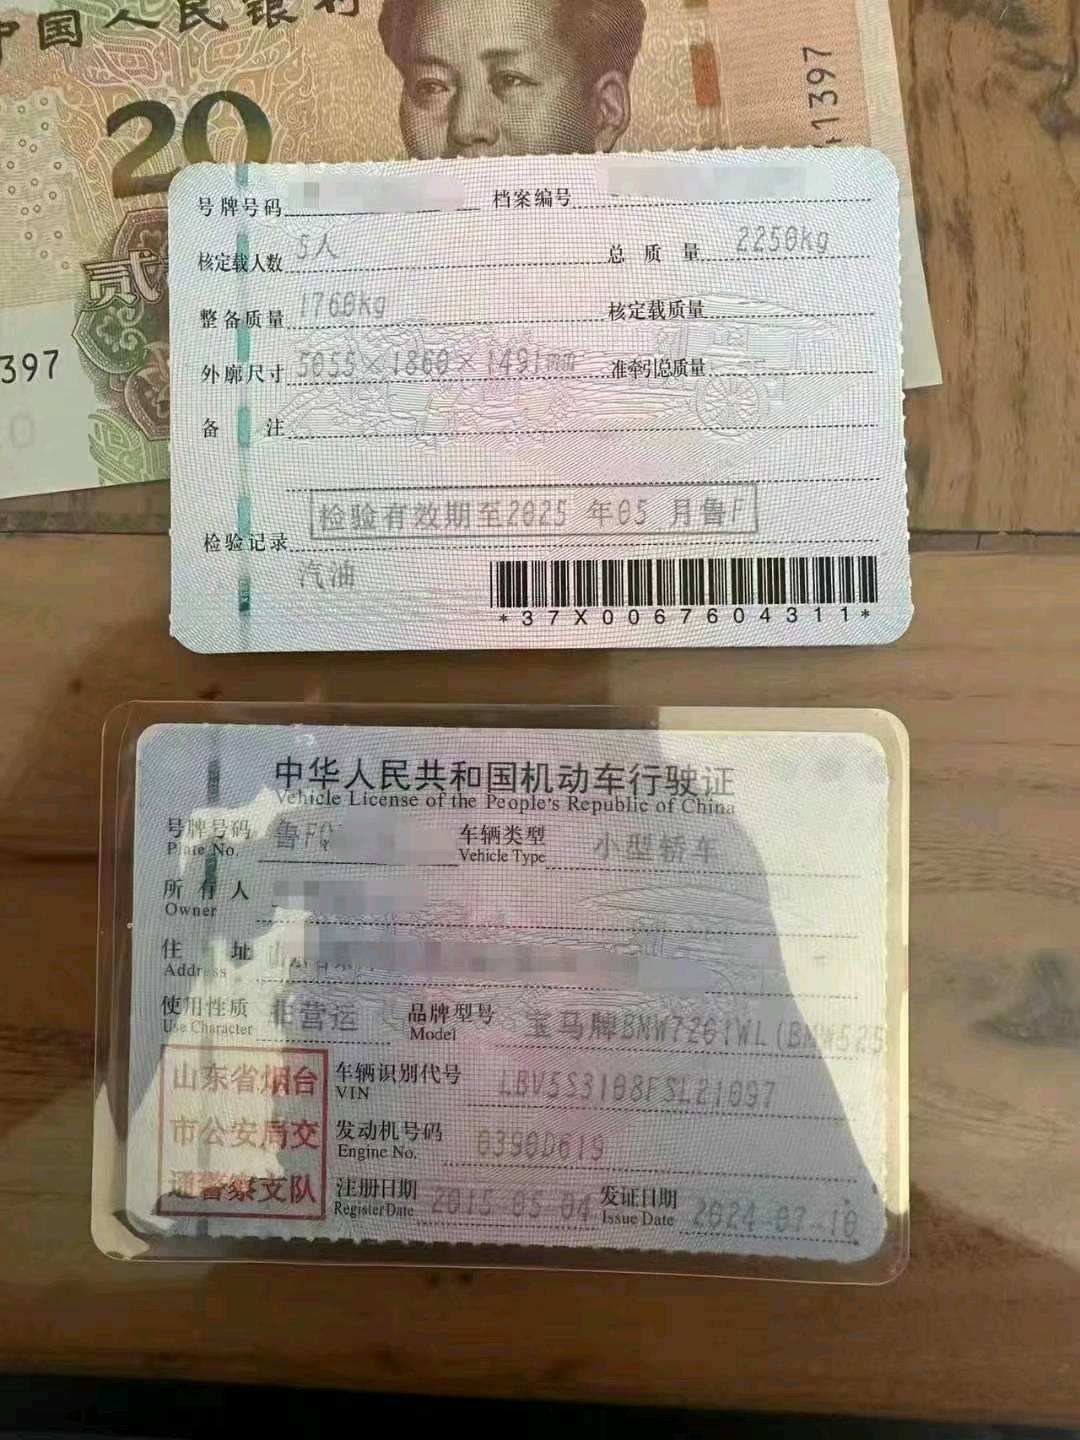 中国人民银行
20
1397
贰
1397
号牌号码
档案编号
核定载人数 5人
总质量 2250kg
整备质量 1760kg
核定载质量
外廓尺寸 5055×1860×1491mm
准牵引总质量 --
备注
检验有效期至2025年05月鲁F
检验记录
汽油
*37X0067604311*
中华人民共和国机动车行驶证
Vehicle License of the People's Republic of China
号牌号码 鲁FQ 车辆类型 小型轿车
Plate No. Vehicle Type
所有人
Owner
住址 山东省
Address
使用性质 非营运 品牌型号 宝马牌BMW7201WL(BMW525
Use Character Model
山东省烟台 车辆识别代号 LBV5S3108FSL21097
VIN
市公安局交 发动机号码 0390D619
Engine No.
通警察支队 注册日期 2015-05-04 发证日期 2024-07-10
Register Date Issue Date